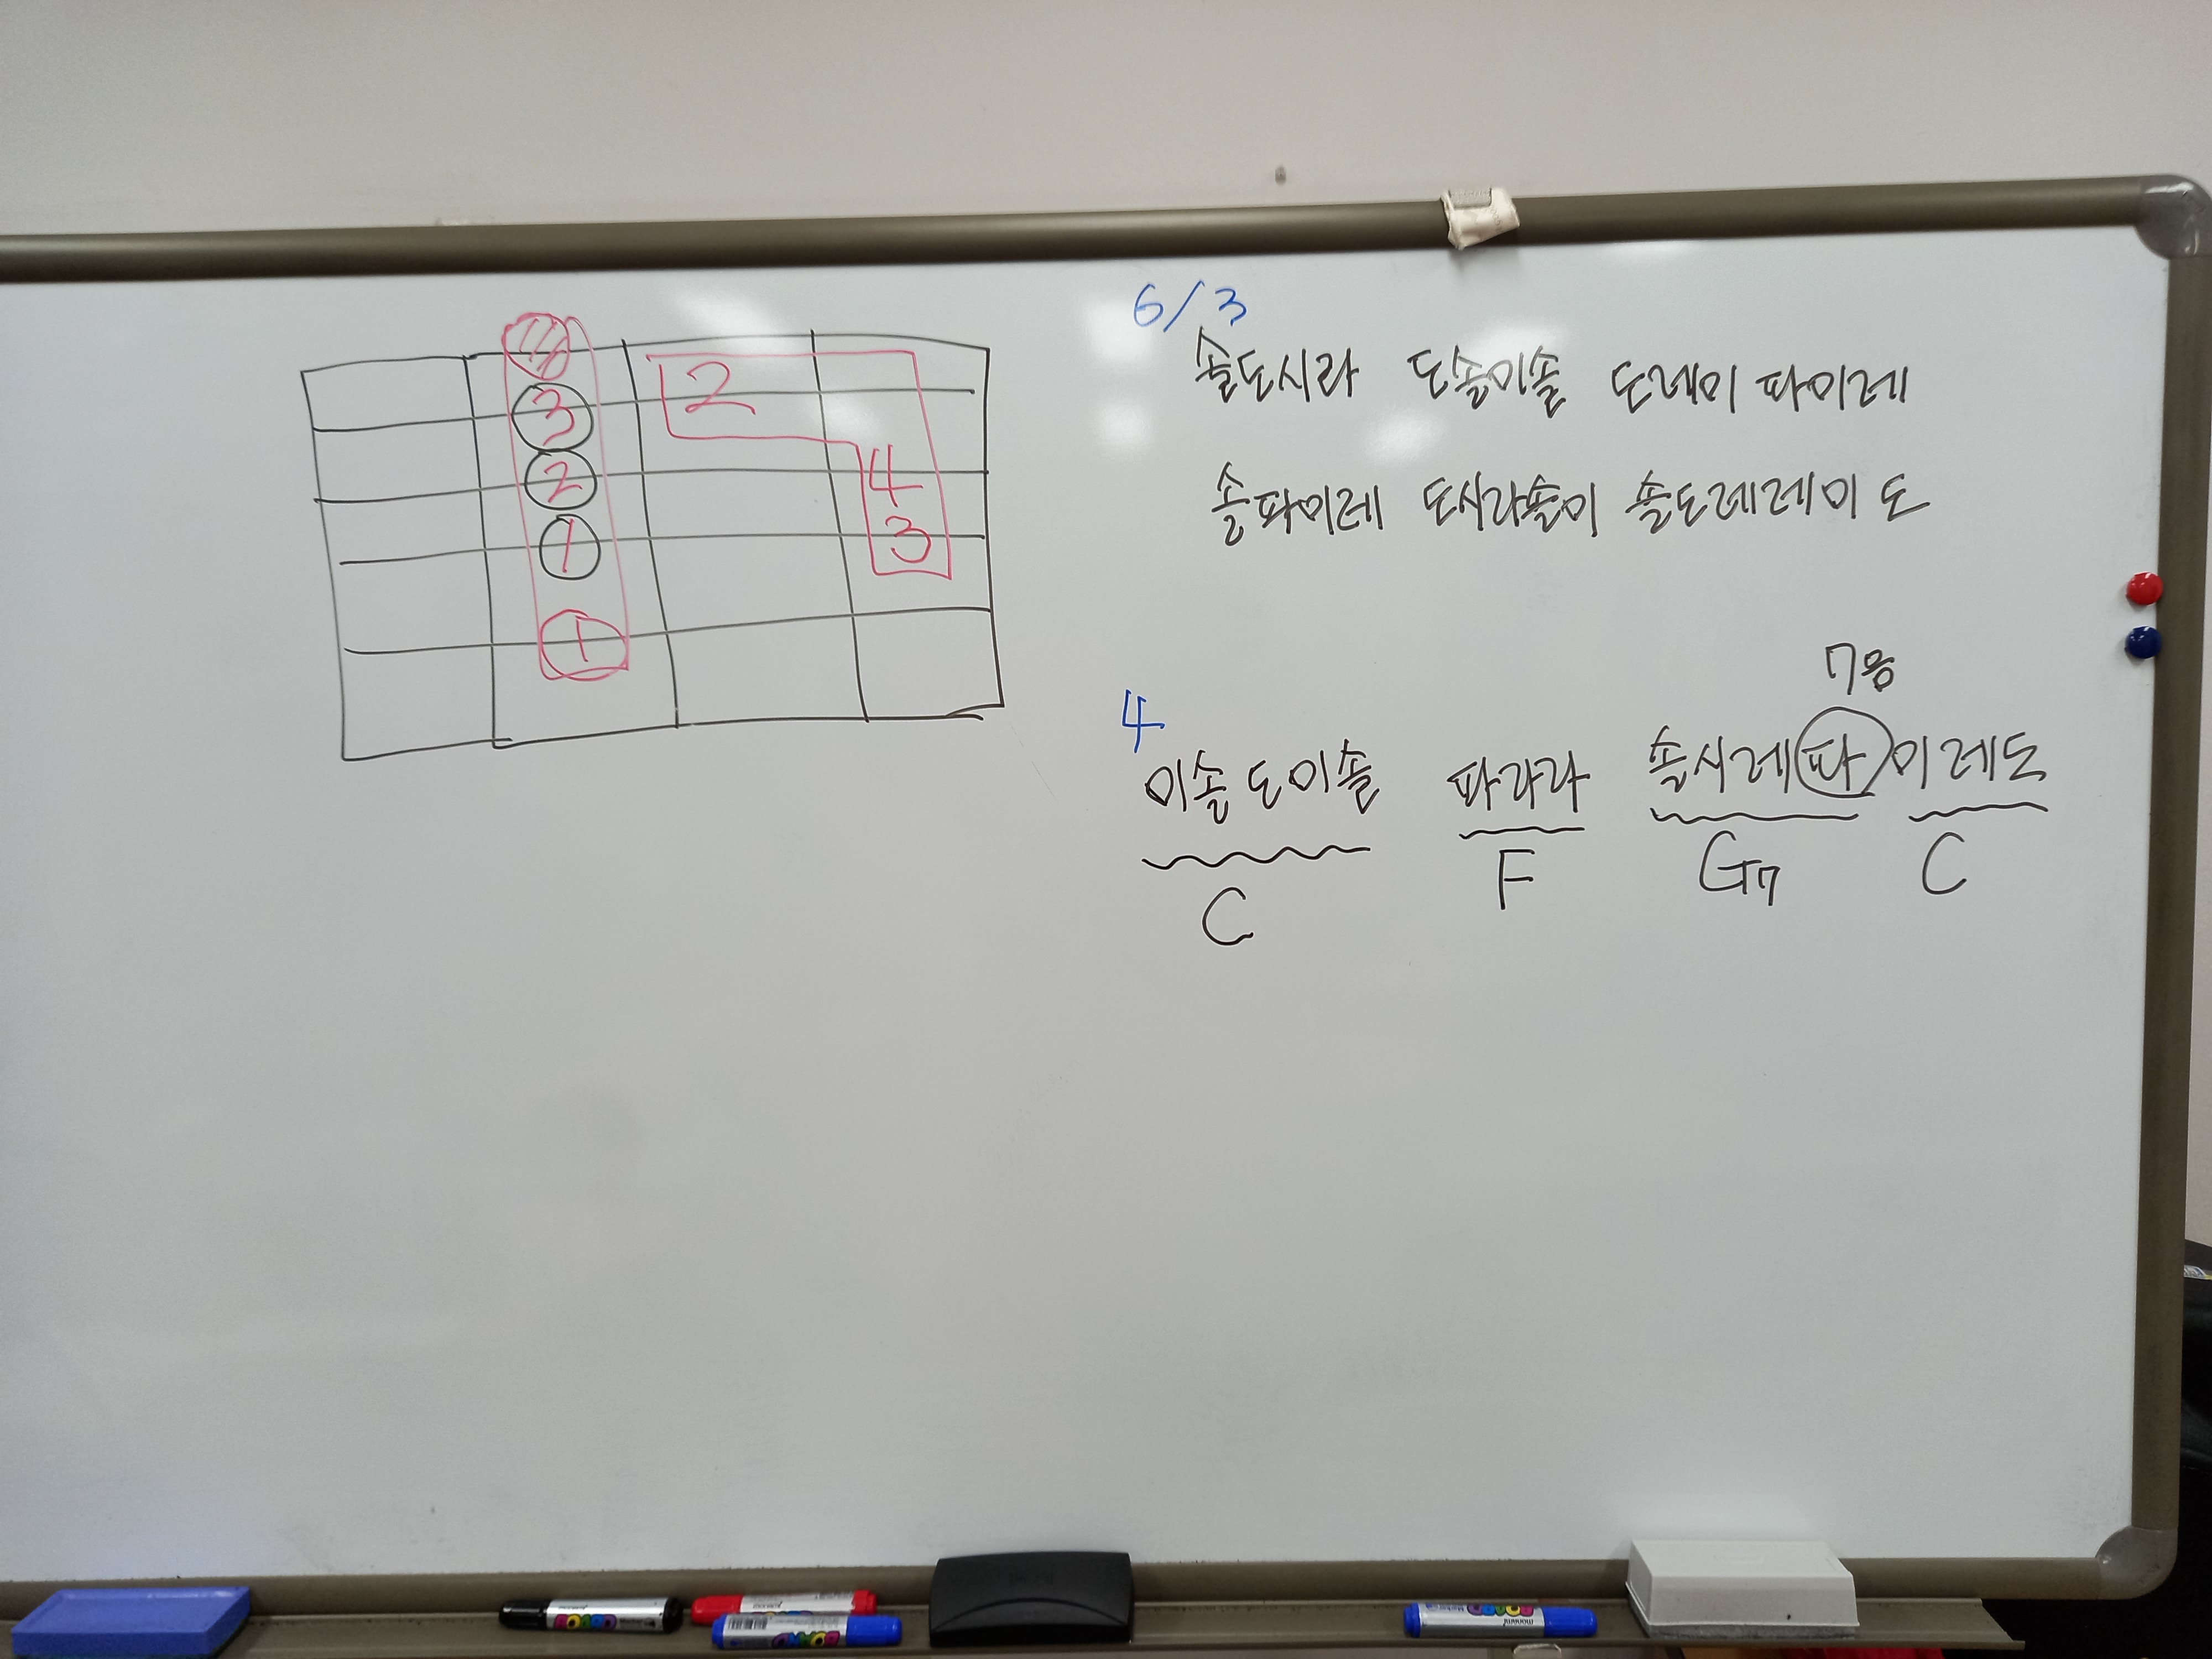 6/3
솔도시라 도솔미솔 도레미 파미레
솔파미레 도시라솔미 솔도레레미 도
3
2
1
1
2
4
3
4
7음
미솔도미솔 파라라 솔시레파미레도
C F G7 C